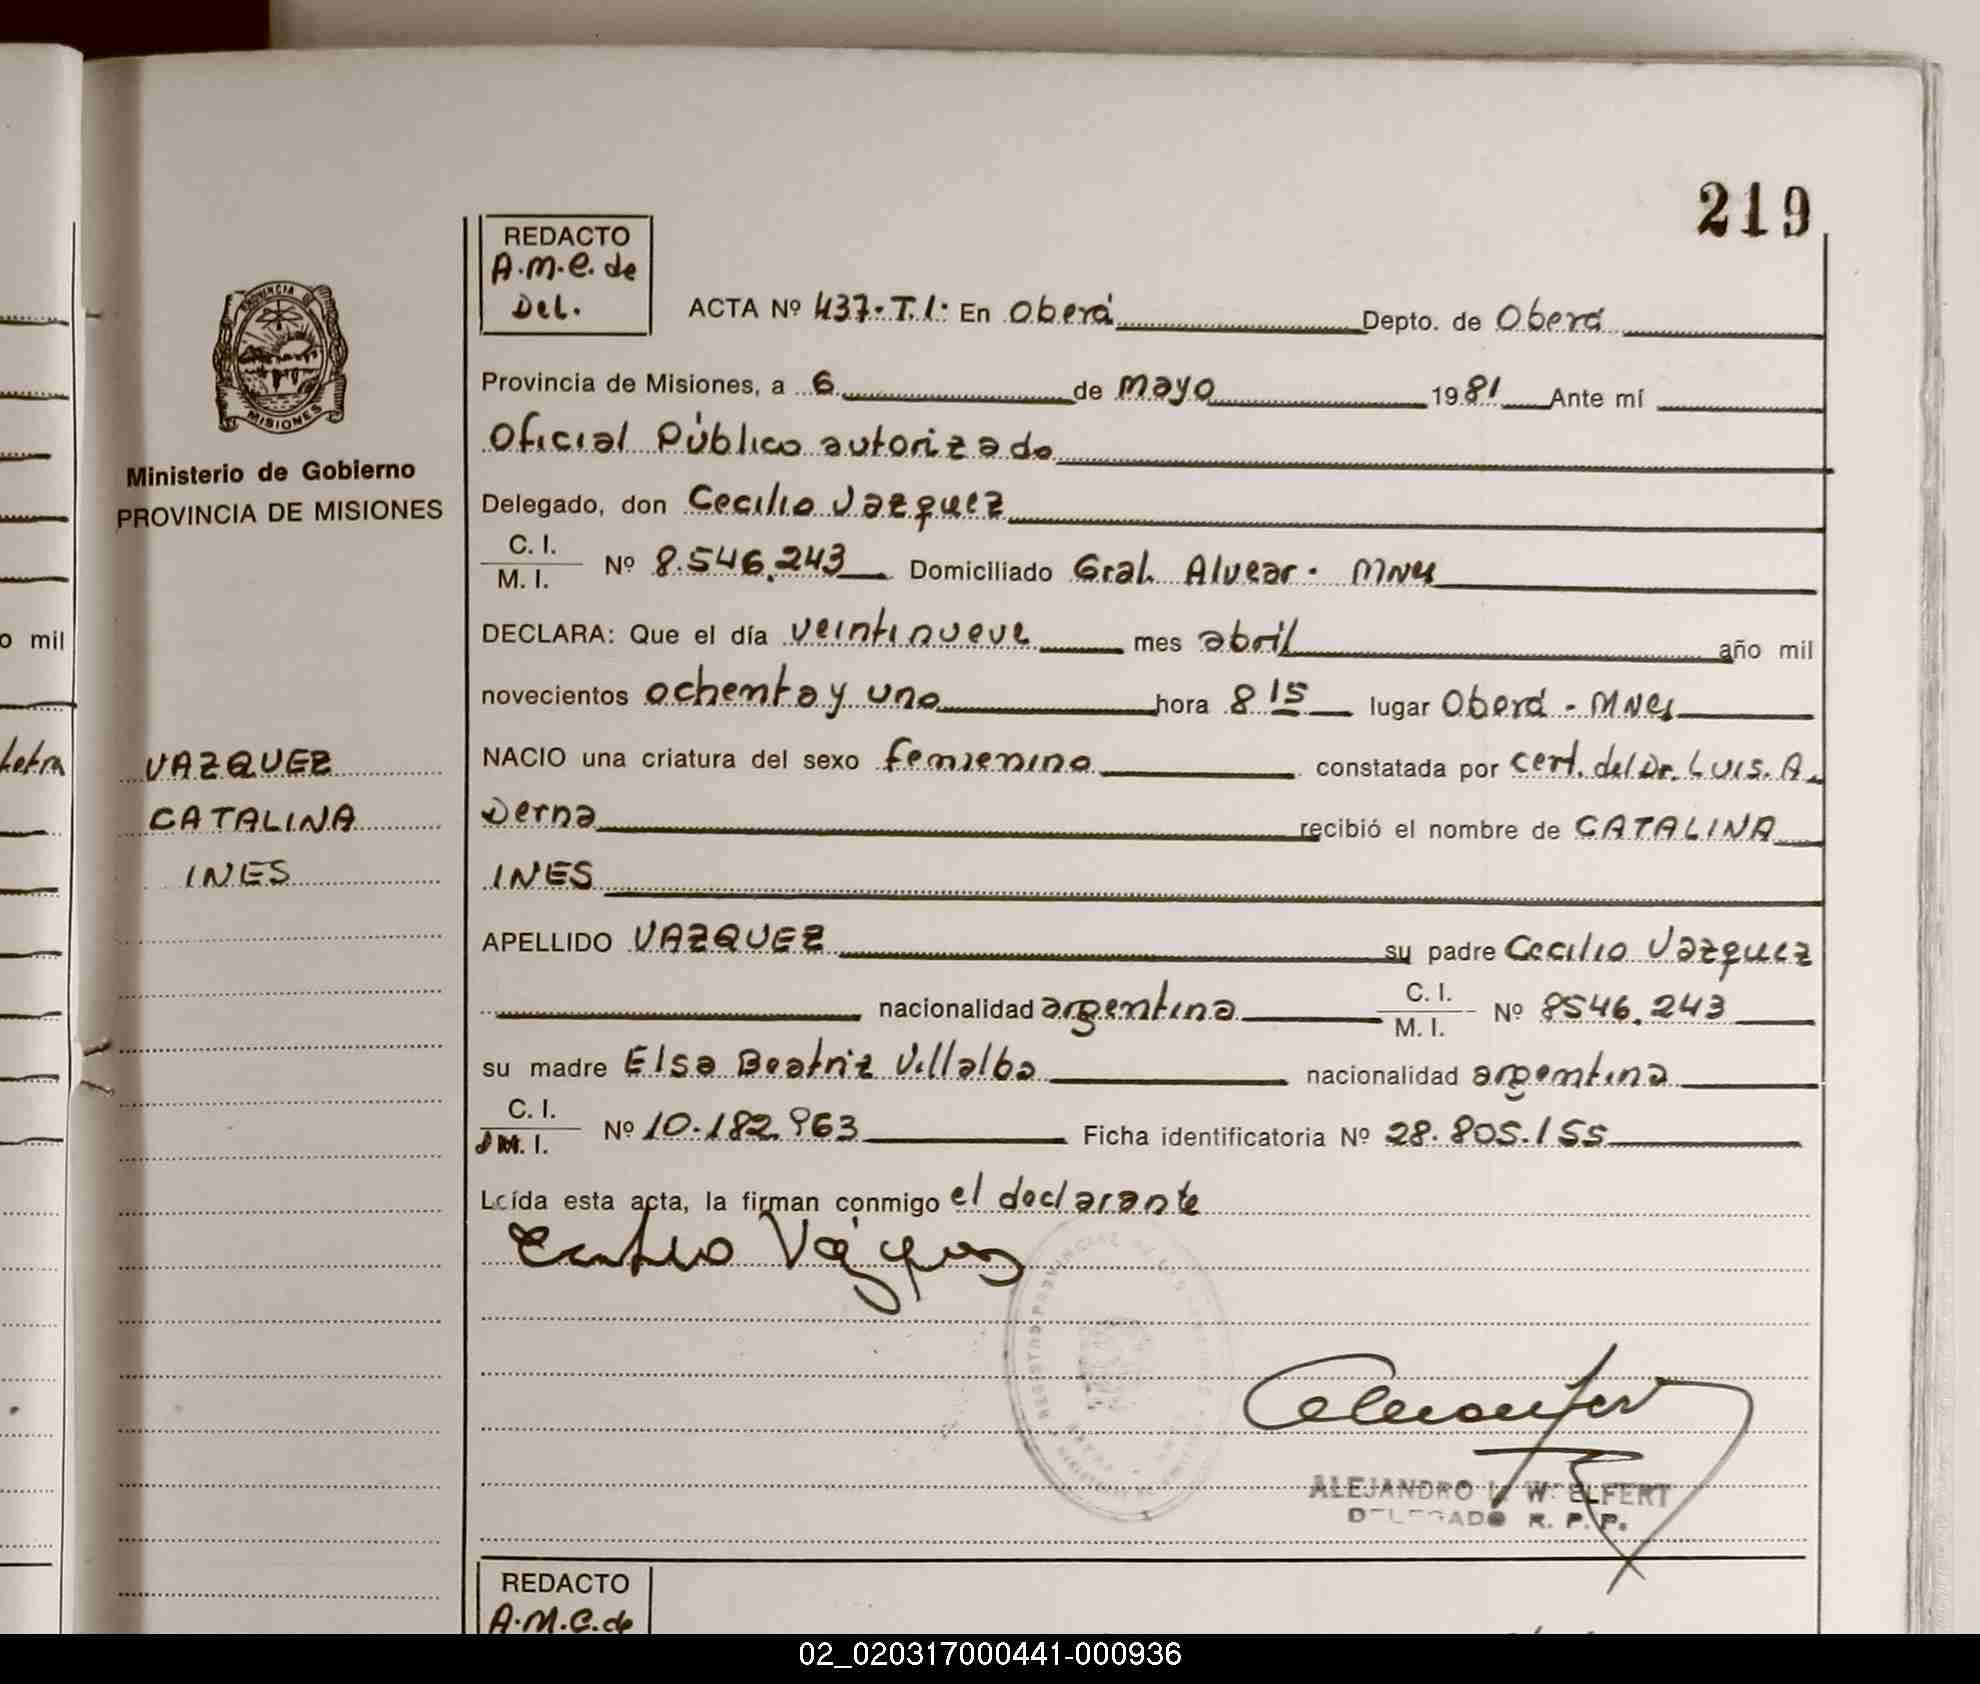 219
REDACTO
A.M.C. de
Del.
ACTA Nº 437-T.I: En Oberá Depto. de Oberá
Provincia de Misiones, a 6 de mayo 1981 Ante mí
Oficial Público autorizado
Delegado, don Cecilio Vazquez
C. I.
M. I.
Nº 8.546.243 Domiciliado Gral. Alvear - Mnes
DECLARA: Que el día veintinueve mes abril año mil
novecientos ochenta y uno hora 8 15 lugar Oberá - Mnes
NACIO una criatura del sexo femienino constatada por cert. del Dr. LUIS. A.
Derna recibió el nombre de CATALINA
INES
APELLIDO VAZQUEZ su padre Cecilio Vazquez
nacionalidad argentina C. I. M. I. Nº 8546.243
su madre Elsa Beatriz Villalba nacionalidad argentina
C. I.
M. I.
Nº 10.182.963 Ficha identificatoria Nº 28.805.155
Leída esta acta, la firman conmigo el declarante
Vázquez
ALEJANDRO W. ELFERT
DELEGADO R. P. P.
REDACTO
A.M.C. de
PROVINCIA DE
MISIONES
Ministerio de Gobierno
PROVINCIA DE MISIONES
VAZQUEZ
CATALINA
INES
o mil
02_020317000441-000936